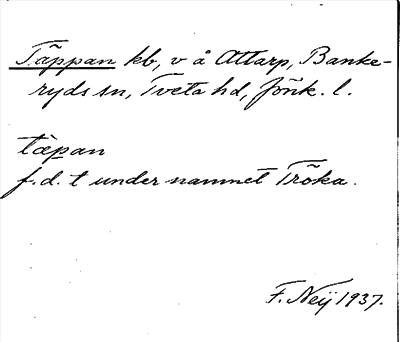 Täppan kb, v å Attarp, Banke-
ryds sn, Tveta hd, Jönk. l.
tæ̀pan
f.d. t under namnet Tröka.
F. Neij 1937.